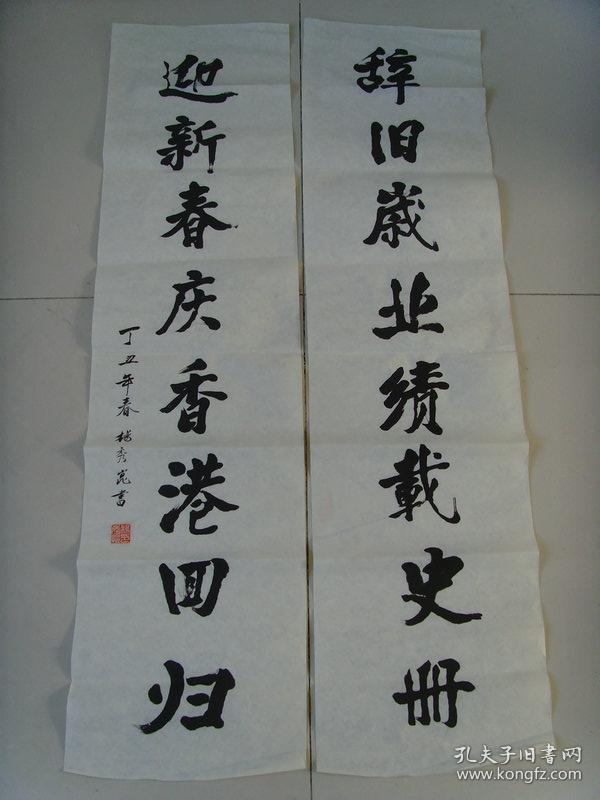 辞旧岁业绩载史册
迎新春庆香港回归
丁丑年春 杨秀崑书
孔夫子旧书网
www.kongfz.com